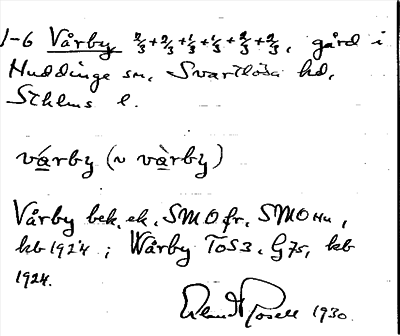 1-6 Vårby 2/3+2/3+1/3+1/3+2/3+2/3, gård i
Huddinge sn, Svartlösa hd,
Sthlms l.
vårby (~ vàrby)
Vårby bek. ek. SMOfr, SMOHu,
kb 1924; Wårby TOS3. G75, kb
1924.
1930.